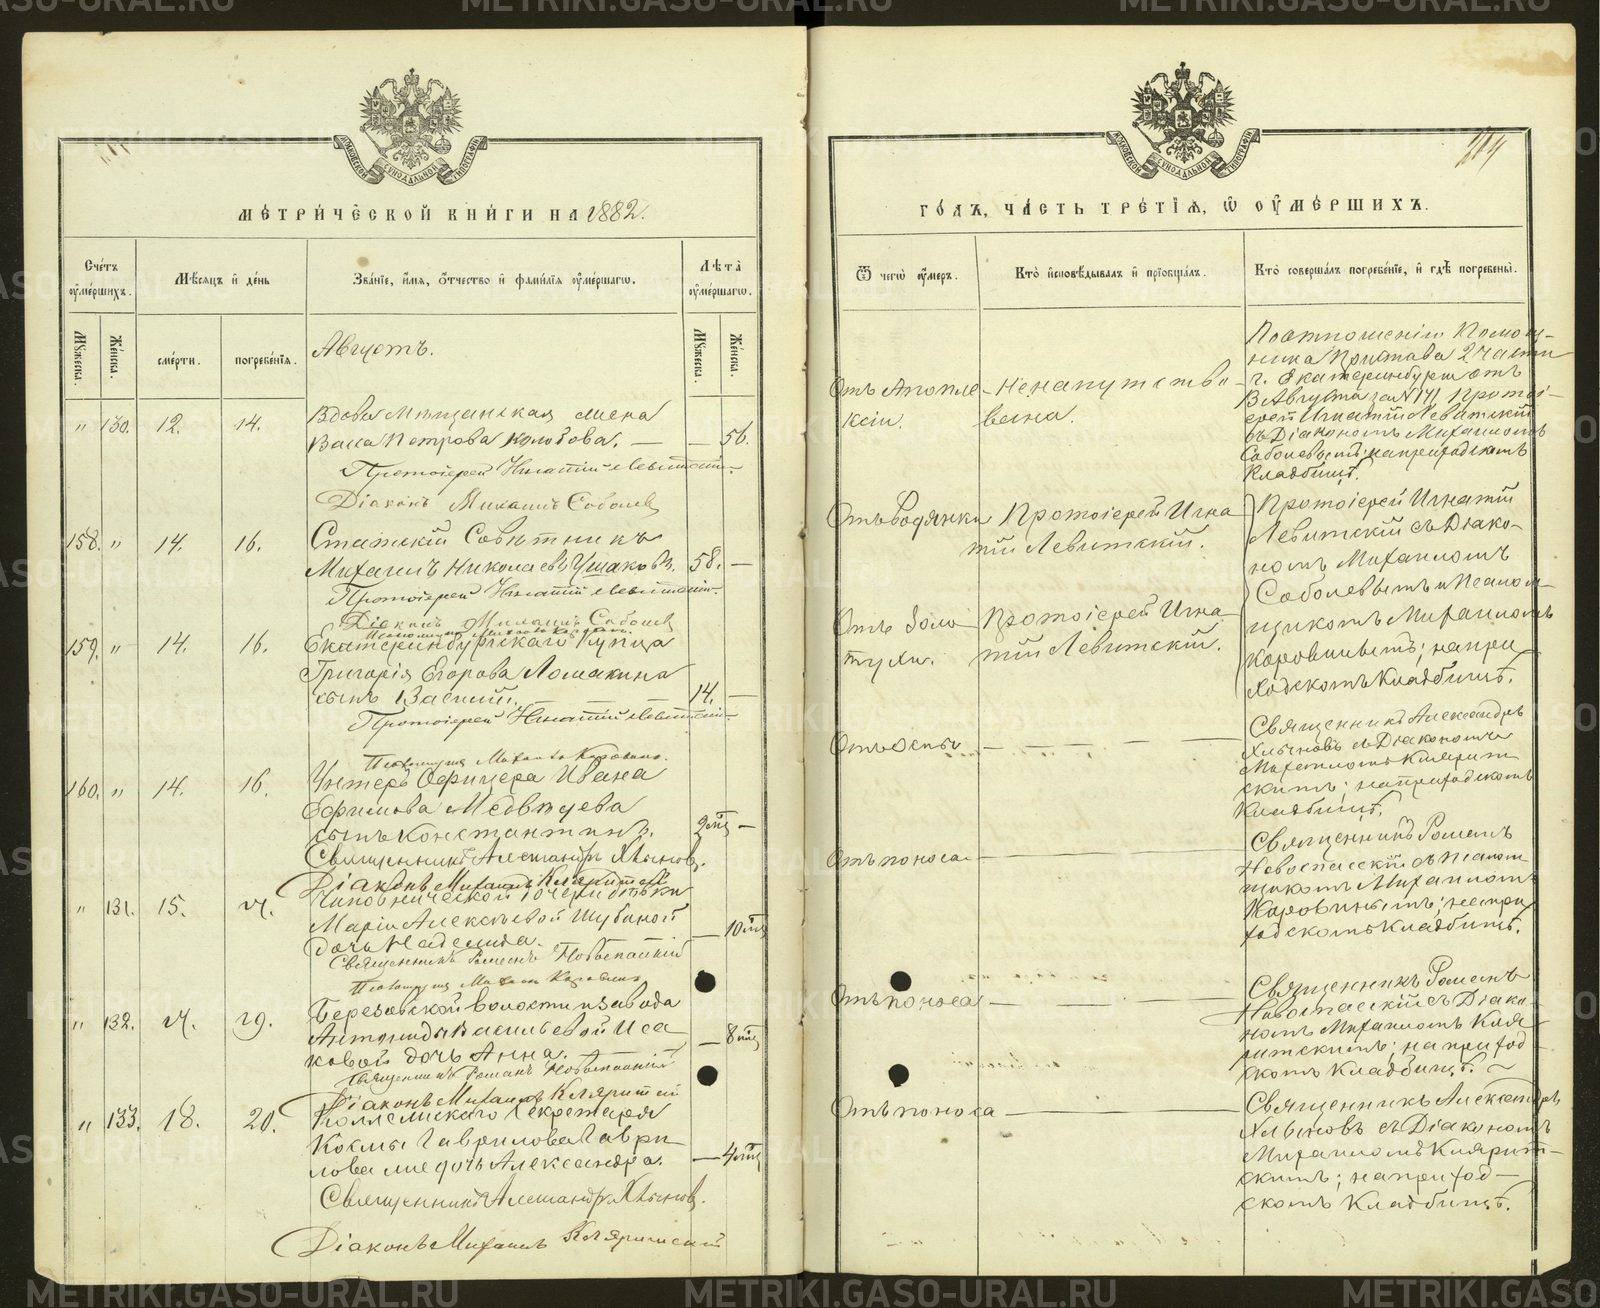 МЕТРИЧЕСКОЙ КНИГИ НА 1882.
Счетъ умершихъ.
Мѣсяцъ и день
Званіе, имя, отчество и фамилія умершаго.
Лѣта умершаго.
Мужеска.
Женска.
смерти.
погребенія.
Мужеска.
Женска.
Августъ.
" 130. 12. 14.
Вдова Мѣщанская жена
Васса Петрова Колобова. — — 56.
Протоіерей Игнатій Левитскій.
Діаконъ Михаилъ Соболев
158. " 14. 16.
Статскій Совѣтникъ
Михаилъ Николаевъ Ушаковъ. 58. —
Протоіерей Игнатій Левитскій.
Діаконъ Михаилъ Соболев
159. " 14. 16.
Екатеринбургскаго Купца
Григорія Егорова Ломакина
сынъ Василій. 14. —
Протоіерей Игнатій Левитскій.
160. " 14. 16.
Унтеръ Офицера Ивана
Ефимова Медвѣдева
сынъ Константинъ. 2 мц —
Священникъ Александръ Хлыновъ.
Діаконъ Михаилъ
" 131. 15.
Чиновнической дочери дѣвки
Маріи Алексѣевой Шубиной
дочь Надежда. — 10 мц
Священникъ Романъ Новоспасскій
" 132.
Березовской волости и завода
Васильевой Иса
ковой дочь Анна. — 8 мц
Священникъ Романъ Новоспасскій
Діаконъ Михаилъ
" 133. 18. 20.
Коллежскаго Секретаря
Космы Гаврилова Гаври
лова же дочь Александра. — 4 мц
Священникъ Александръ Хлыновъ.
Діаконъ Михаилъ
ГОДЪ, ЧАСТЬ ТРЕТІЯ, Ѿ УМЕРШИХЪ.
Ѿ чего умеръ.
Кто исповѣдывалъ и пріобщалъ.
Кто совершалъ погребеніе, и гдѣ погребены.
Отъ Апопле-
ксіи.
Не напутство-
вана.
По отношенію Помощ-
ника Пристава 2 Части
г. Екатеринбурга отъ
13 Августа за № 141 Протоі-
ерей Игнатій Левитскій
съ Діакономъ Михаиломъ
Соболевымъ; на приходскомъ
Кладбищѣ.
Отъ Водянки
Протоіерей Игна
тій Левитскій.
Протоіерей Игнатій
Левитскій съ Діако-
номъ Михаиломъ
Соболевымъ и Псалом-
щикомъ Михаиломъ
Коровинымъ; на при-
ходскомъ Кладбищѣ.
Отъ Золо
тухи.
Протоіерей Игна
тій Левитскій.
Отъ Оспы — — —
Священникъ Александръ
Хлыновъ съ Діакономъ
Михаиломъ
скимъ; на приходскомъ
Кладбищѣ.
Отъ поноса —
Священникъ Романъ
Новоспасскій съ Псалом-
щикомъ Михаиломъ
Коровинымъ; на при
ходскомъ Кладбищѣ.
Отъ поноса —
Священникъ Романъ
Новоспасскій съ Діако-
номъ Михаиломъ Кляя
ритскимъ; на приход
скомъ Кладбищѣ.
Отъ поноса —
Священникъ Александръ
Хлыновъ съ Діакономъ
Михаиломъ
скимъ; на приход-
скомъ Кладбищѣ.
METRIKI.GASO-URAL.RU